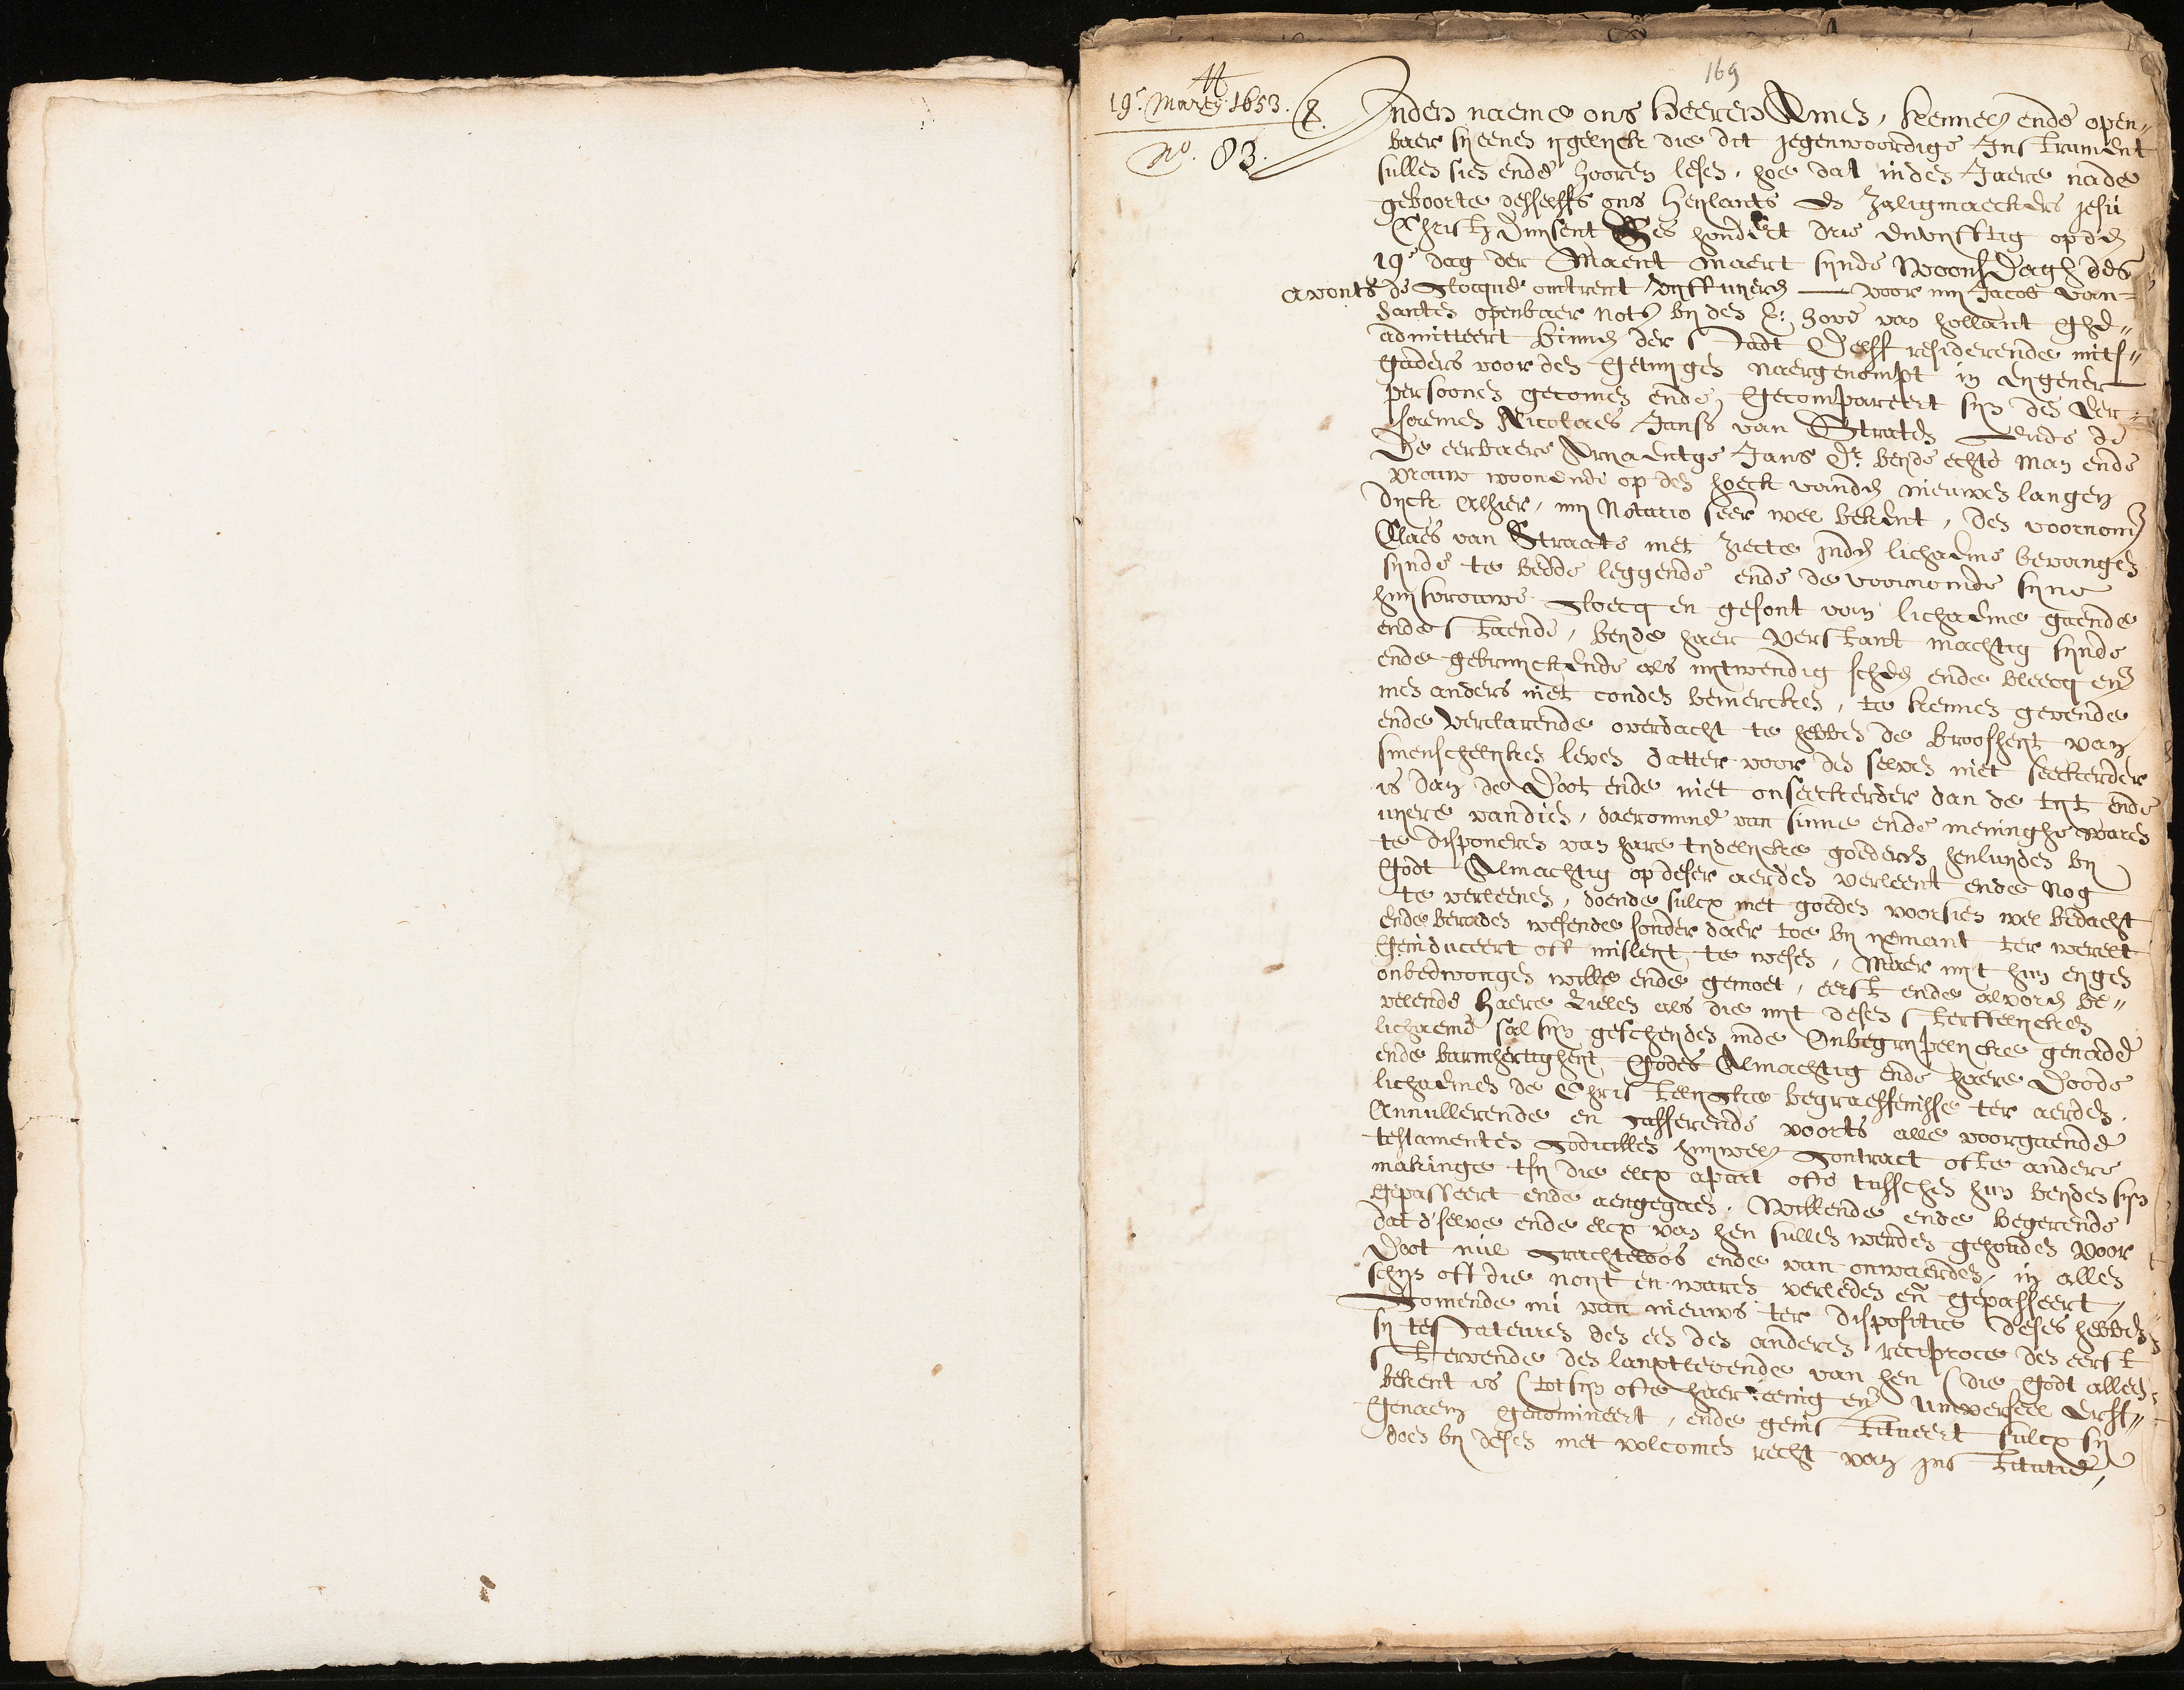 169
19e Martij 1653.
No. 83.
Inden naeme ons heeren Amen, kennel ende open„
baer sij eenen ijgelijck die dit jegenwoordige Instrument
sullen sien ende hooren lesen, hoe dat inden Jaere nade
geboorte desselffs ons heijlants en Zaligmaeckers Jesu
Christi duijsent Ses hondert drie envijfftig opden
19e dag der Maent Maert sijnde Woonsdagh des
avonts de Clocque omtrent vijff uijeren voor mij Jacob van
Santen openbaer Nots bij den E: hove van hollant ghe„
admitteert binnen der Stadt Delff residerende mits„
gaders voor den getuijgen naergenompt in eijgener
persoonen gecomen ende gecompareert sijn den eer„
saemen Nicolaes Janss van Straten ende de
De eerbaere Arijaentge Jans Dr. beijde echte man ende
vrouw woonende op den hoeck vanden nieuwen langen
dijck alhier, mij Notario seer wel bekent, den voornomde
Claes van Straate met ziecte inden lichaeme bevangen
sijnde te bedde leggende ende de voornomde sijne
huijsvrouwe Cloecq en gesont van lichaeme gaende
ende staende, beijde haer verstant machtig sijnde
ende gebruijckende als uijtwendig scheen ende bleecq en
men anders niet conden bemercken, te kennen gevende
ende verclarende overdacht te hebben de broosheijt van
smenschelijcken leven datter voor den selven niet seeckerder
is dan de Doot ende niet onseeckerder dan de tijt ende
uijere vandien, daeromme van sinne ende meninghe waren
te disponeren van hare tijdelijcke goederen henluijden bij
Godt Almachtig op deser aerden verleent ende nog
te verleenen, doende sulcx met goeden voorsien wel bedacht
ende beraden wesende sonder daer toe bij ijemant ter werelt
geinduceert oft misleijt te wesen, Maer uijt hun eijgen
onbedwongen wille ende gemoet, eerst ende alvoren be„
velende haere Zielen als die uijt desen sterffelijcken
lichaeme sal sijn gescheijden inde Onbegrijpelijcke genade
ende barmhertigheijt Godes Almachtig ende haere Doode
lichaemen de Christelijcke begraeffenisse ter aerden.
Annullerende en Casserende voorts alle voorgaende
testamenten Codicillen huijwel. Contract ofte andere
makinge tsij die elcx apart ofte tusschen hun beijden sijn
gepasseert ende aengegaen. Willende ende begerende
dat d'selve ende elcx van hen sullen werden gehouden voor
Doot nul Crachteloos ende van onwaerden, in allen
schijn oft die noijt en waren verleden en gepasseert,
Comende nu van nieuws ter dispositie deses hebben
sij testateuren den een den anderen reciproce den eerst
stervende den langstlevende van hen (die Godt alleen
bekent is (tot sijn ofte haer eenig en universeel Erff„
genaem genomineert, ende geinstitueert sulcx sij
doen bij desen met volcomen recht van institutie,